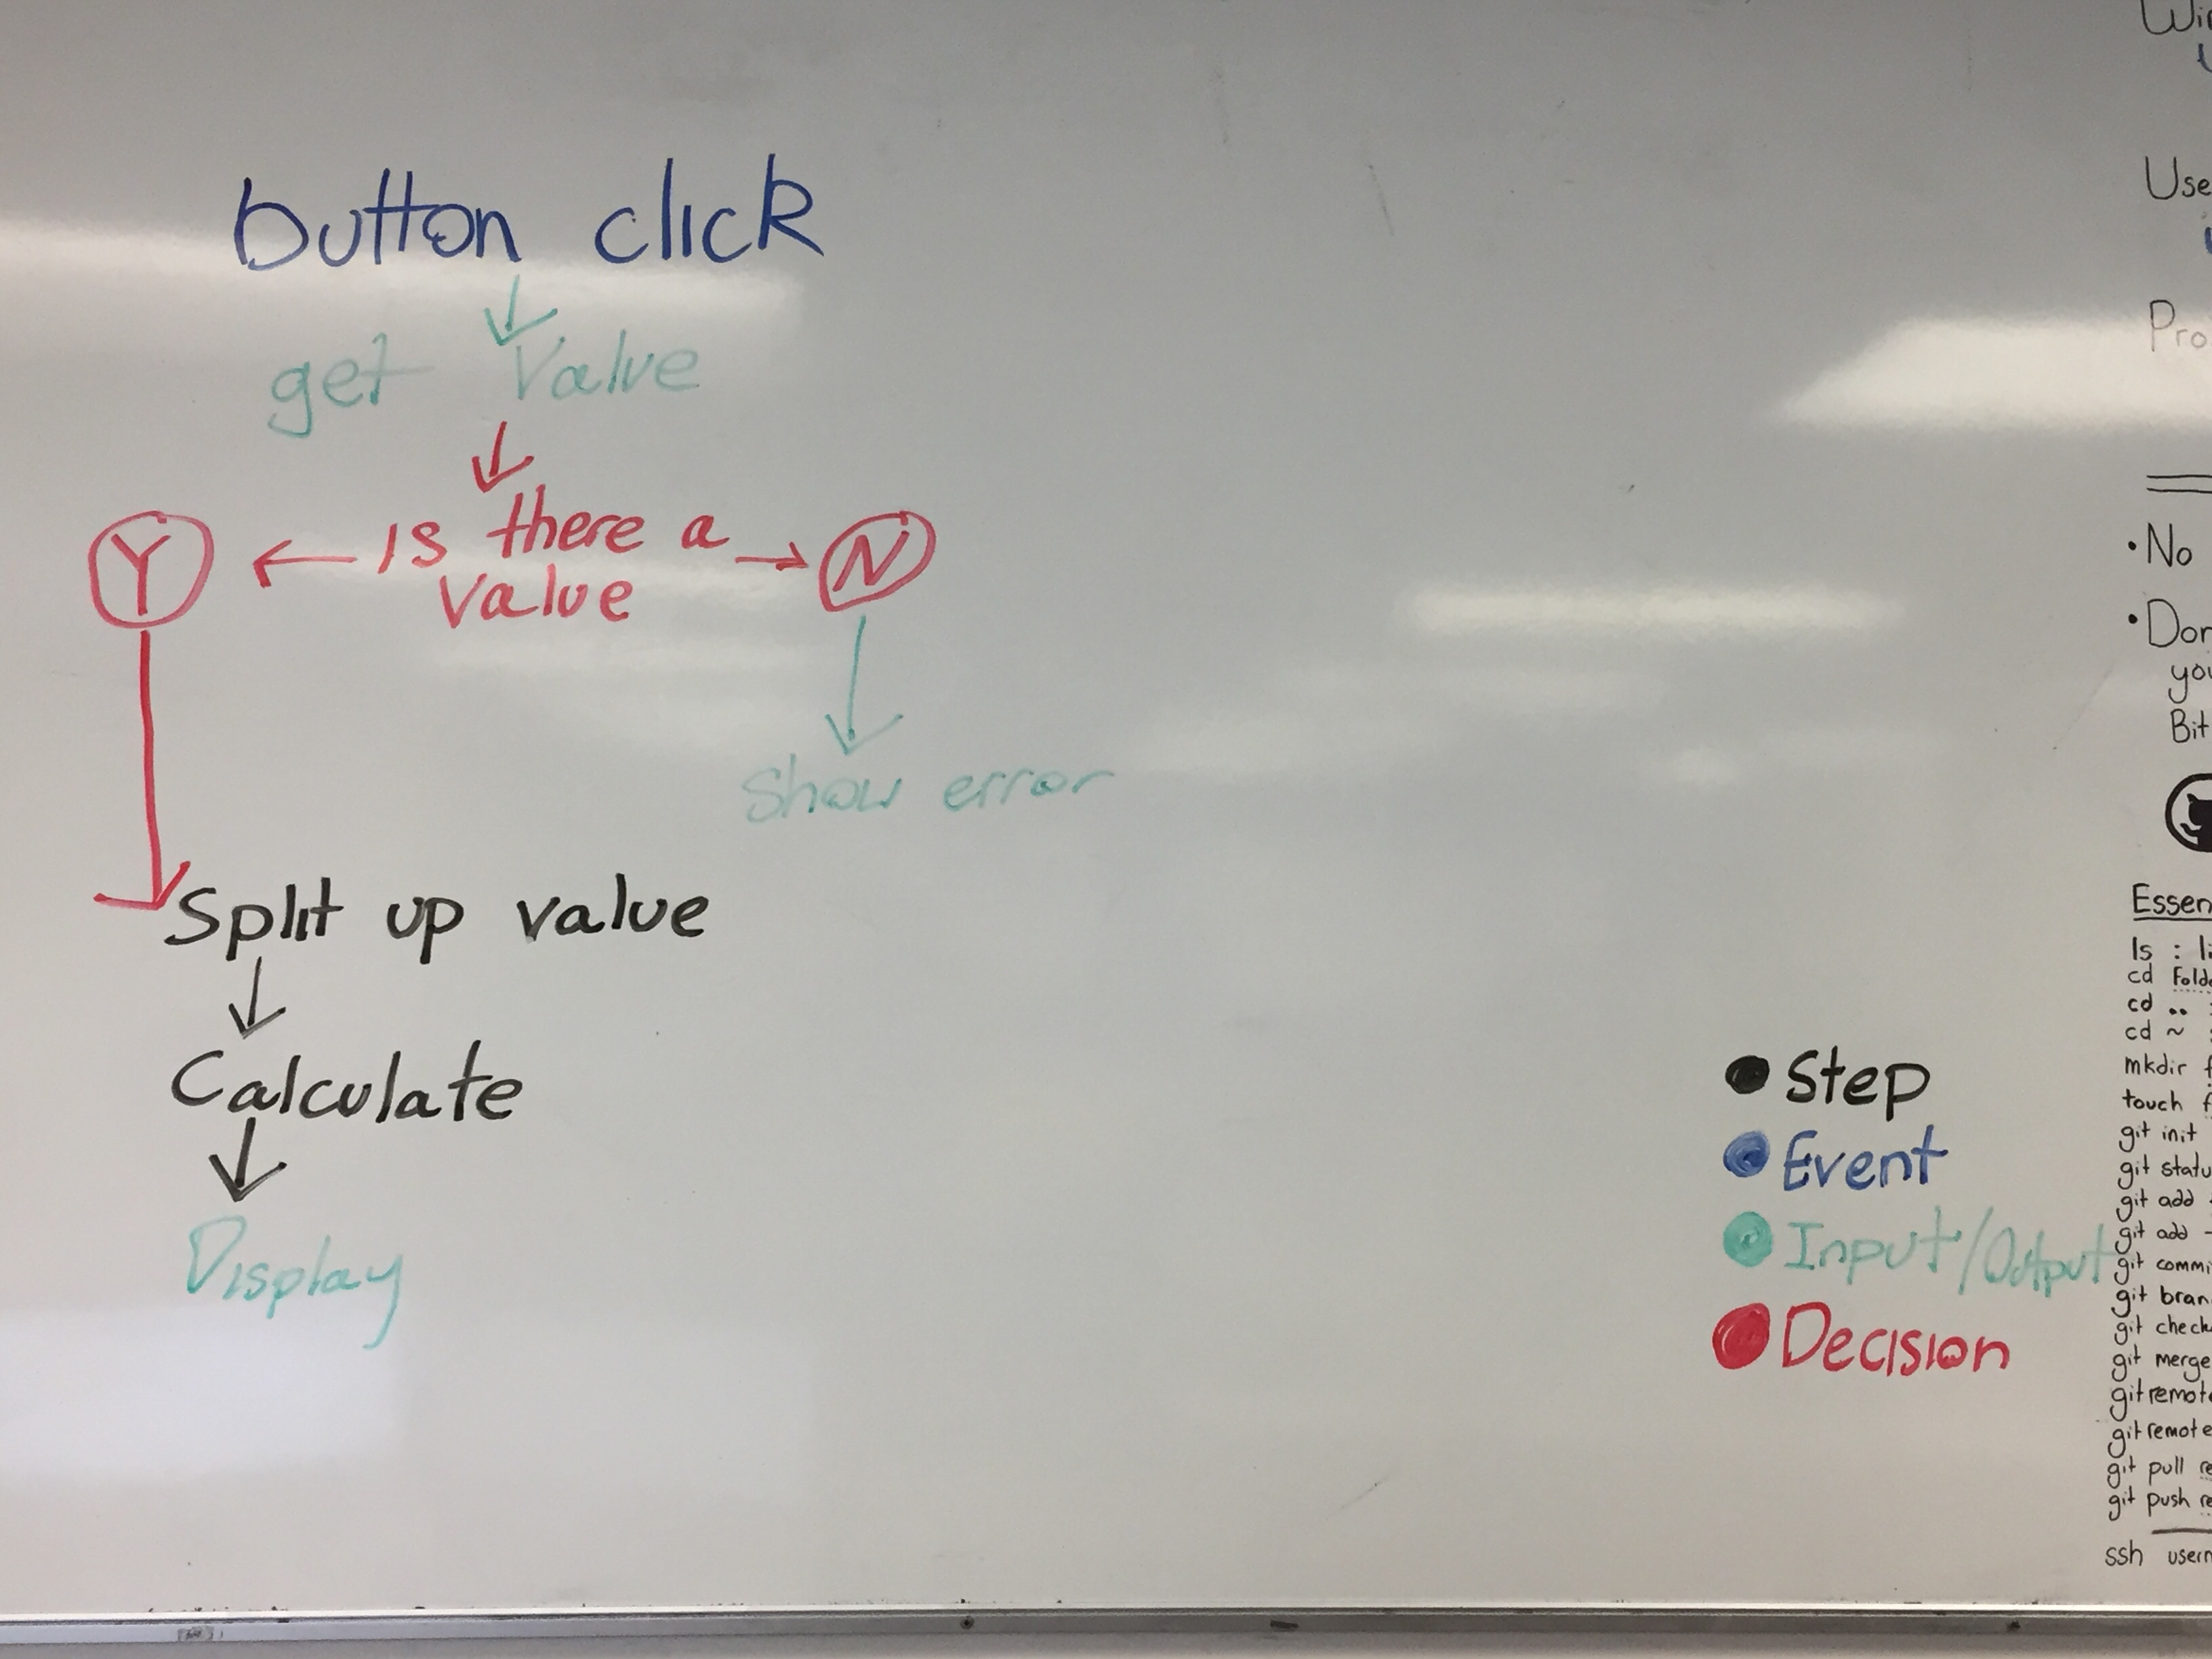 button click
get Value
Is there a
Value
Y
N
Show error
Split up value
Calculate
Display
Step
Event
Input/Output
Decision
Use
Pro
• No
• Don
you
Bit
Essen
ls : li
cd Folde
cd ..
cd ~
mkdir f
touch f
git init
git statu
git add
git add -
git commi
git bran
git check
git merge
git remote
git remote
git pull re
git push re
ssh usern